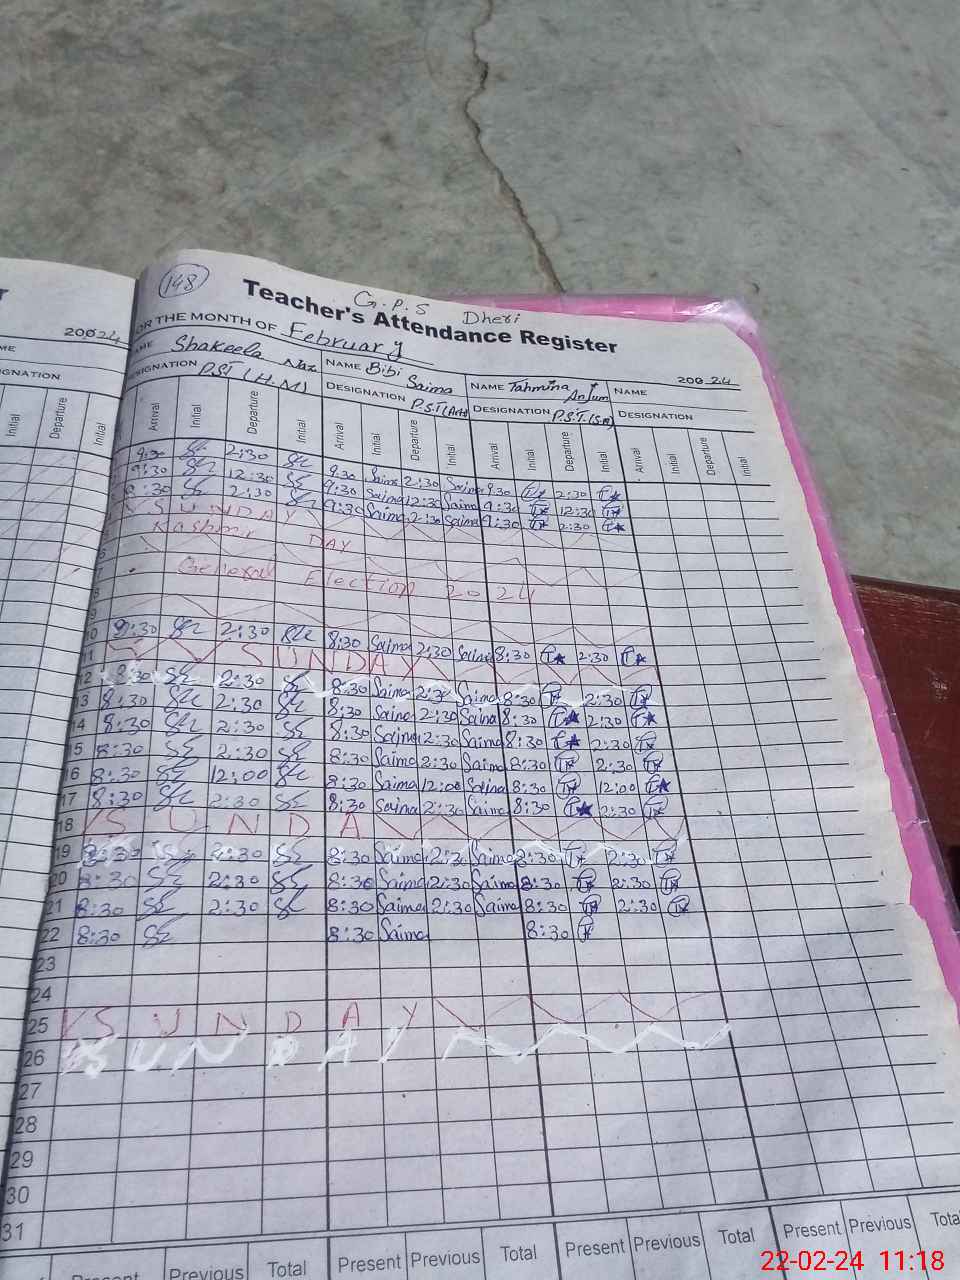 148
G.P.S Dheri
Teacher's Attendance Register
FOR THE MONTH OF February
200 24
200 24
NAME Shakeela Naz NAME Bibi Saima NAME Tahmina Anjum NAME
DESIGNATION PST (H.M) DESIGNATION P.S.T (Arts) DESIGNATION P.S.T. DESIGNATION
Initial Departure Initial Arrival Initial Departure Initial Arrival Initial Departure Initial Arrival Initial Departure Initial Arrival Initial Departure Initial
9:30 2:30 9:30 Saima 2:30 Saima 9:30 2:30
9:30 12:30 9:30 Saima 12:30 Saima 9:30 12:30
9:30 2:30 9:30 Saima 2:30 Saima 9:30 2:30
SUNDAY
Kashmir DAY
6
7
General Election 2024
8
9
10 9:30 2:30 8:30 Saima 2:30 Saima 8:30 2:30
11 SUNDAY
12 8:30 2:30 8:30 Saima 2:30 Saima 8:30 2:30
13 8:30 2:30 8:30 Saima 2:30 Saima 8:30 2:30
14 8:30 2:30 8:30 Saima 2:30 Saima 8:30 2:30
15 8:30 2:30 8:30 Saima 2:30 Saima 8:30 2:30
16 8:30 12:00 8:30 Saima 12:00 Saima 8:30 12:00
17 8:30 2:30 8:30 Saima 2:30 Saima 8:30 2:30
18 SUNDA
19 8:30 2:30 8:30 Saima 2:30 Saima 8:30 2:30
20 8:30 2:30 8:30 Saima 2:30 Saima 8:30 2:30
21 8:30 2:30 8:30 Saima 2:30 Saima 8:30 2:30
22 8:30 8:30 Saima 8:30
23
24
25 SUNDAY
26 SUNDAY
27
28
29
30
31
Present Previous Total Present Previous Total Present Previous Total Present Previous Total
22-02-24 11:18